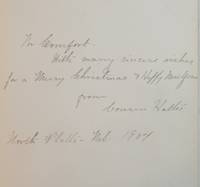 To Comfort.
With many sincere wishes
for a Merry Christmas & Happy New Year
from
Cousin Hattie
North Platte - Neb 1904